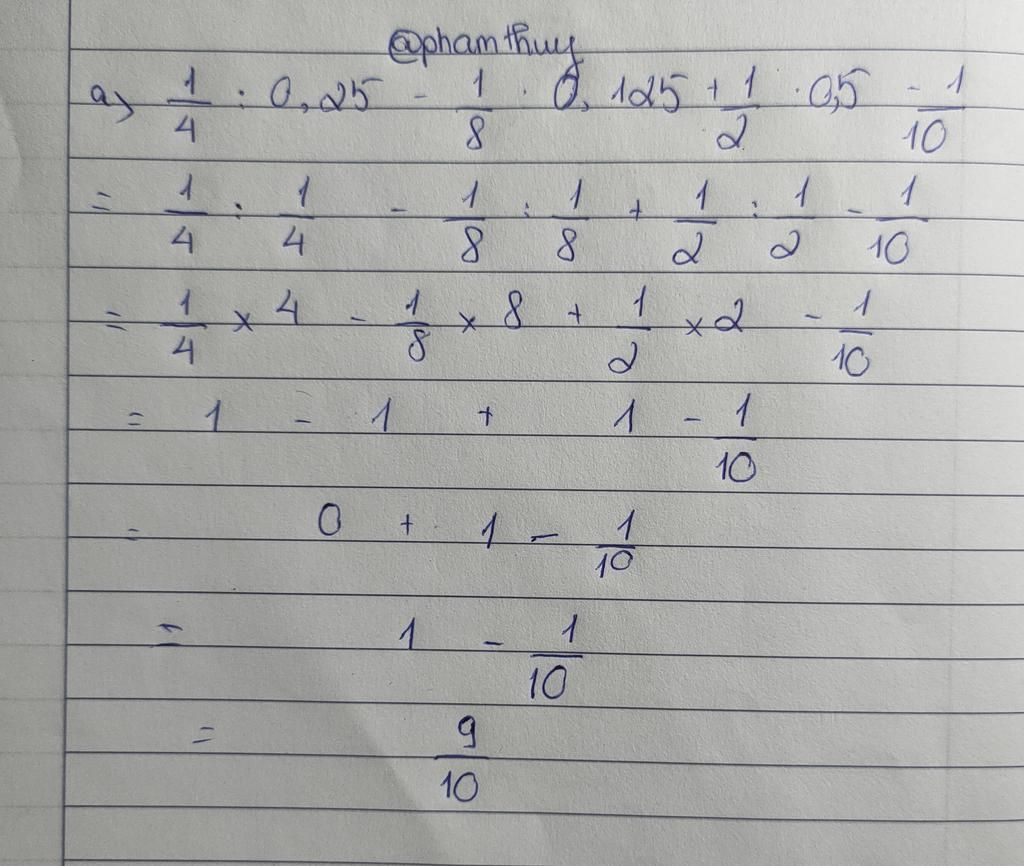 @phamthuy
a) 1/4 : 0,25 - 1/8 . 0,125 + 1/2 . 0,5 - 1/10
= 1/4 : 1/4 - 1/8 : 1/8 + 1/2 : 1/2 - 1/10
= 1/4 × 4 - 1/8 × 8 + 1/2 × 2 - 1/10
= 1 - 1 + 1 - 1/10
= 0 + 1 - 1/10
= 1 - 1/10
= 9/10